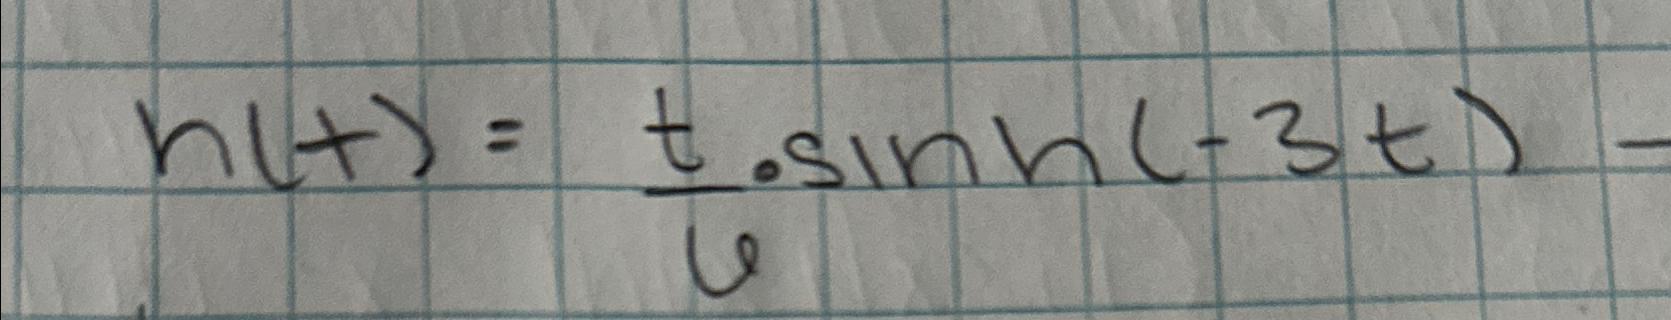 h(t) = t/6 · sinh(-3t) -